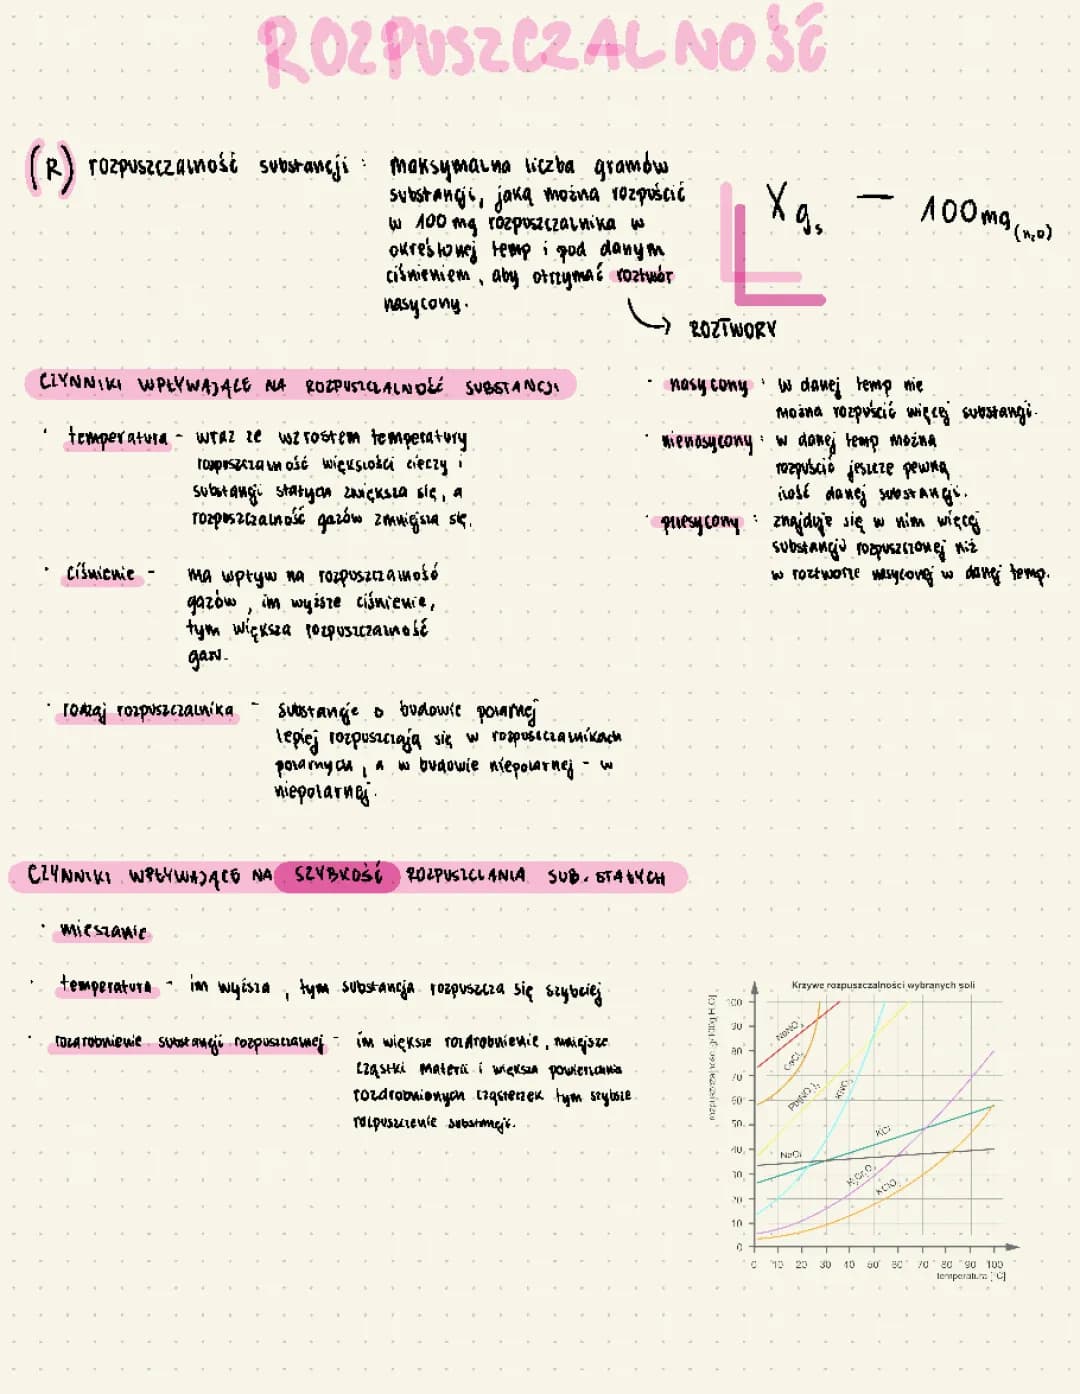 ROZPUSZCZALNOŚĆ
(R) rozpuszczalność substancji : maksymalna liczba gramów
substancji, jaką można rozpuścić
w 100 mg rozpuszczalnika w
określonej temp i pod danym
ciśnieniem, aby otrzymać roztwór
nasycony.
X gs — 100mg (H2O)
→ ROZTWORY
• nasycony : w danej temp nie
można rozpuścić więcej substancji.
• nienasycony : w danej temp można
rozpuścić jeszcze pewną
ilość danej substancji.
• przesycony : znajduje się w nim więcej
substancji rozpuszczonej niż
w roztworze nasyconej w danej temp.
CZYNNIKI WPŁYWAJĄCE NA ROZPUSZCZALNOŚĆ SUBSTANCJI
• temperatura - wraz ze wzrostem temperatury
rozpuszczalność większości cieczy i
substancji stałych zwiększa się, a
rozpuszczalność gazów zmniejsza się.
• ciśnienie - ma wpływ na rozpuszczalność
gazów, im wyższe ciśnienie,
tym większa rozpuszczalność
gazu.
• rodzaj rozpuszczalnika - substancje o budowie polarnej
lepiej rozpuszczają się w rozpuszczalnikach
polarnych, a w budowie niepolarnej - w
niepolarnej.
CZYNNIKI WPŁYWAJĄCE NA SZYBKOŚĆ ROZPUSZCZANIA SUB. STAŁYCH
• mieszanie
• temperatura - im wyższa, tym substancja rozpuszcza się szybciej
• rozdrobnienie substancji rozpuszczanej - im większe rozdrobnienie, mniejsze
cząstki materii i większa powierzchnia
rozdrobnionych cząsteczek tym szybsze
rozpuszczenie substancji.
Krzywe rozpuszczalności wybranych soli
rozpuszczalność [g/100g H2O]
100
90
80
70
60
50
40
30
20
10
0
NaNO3
CaCl2
Pb(NO3)2
KNO3
KCl
NaCl
K2Cr2O7
KClO3
0 10 20 30 40 50 60 70 80 90 100
temperatura [°C]